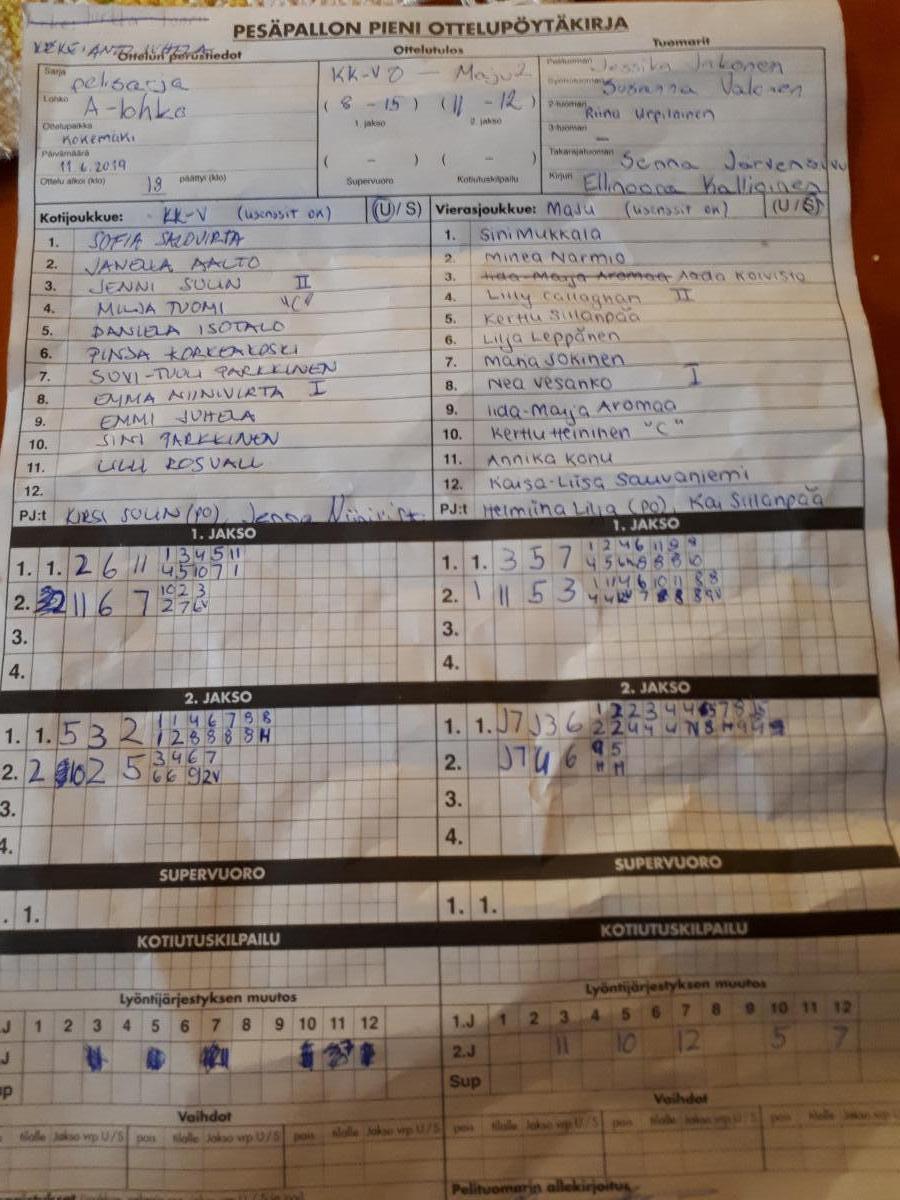 PESÄPALLON PIENI OTTELUPÖYTÄKIRJA
Ottelun perustiedot
Ottelutulos
Tuomarit
Sarja
pelisarja
Lohko
A-lohko
Ottelupaikka
Kokemäki
Päivämäärä
11.6.2019
Ottelu alkoi (klo) 18 päättyi (klo)
KK-V 0 – Maju 2
(8 – 15) (11 – 12)
1. jakso 2. jakso
( – ) ( – )
Supervuoro Kotiutuskilpailu
Pelituomari Jessika
Syöttötuomari Susanna
2-tuomari Riina
3-tuomari –
Takarajatuomari Senna
Kirjuri Ellinoora
Kotijoukkue: KK-V (lisenssit ok) (U/S)
1. SOFIA SALOVIRTA
2. JANELLA AALTO
3. JENNI SULIN II
4. MILJA TUOMI "C"
5. DANIELA ISOTALO
6. PINJA KORKEAKOSKI
7. SUVI-TUULI PARKKINEN
8. EMMA NIINIVIRTA I
9. EMMI JUHELA
10. SINI PARKKINEN
11. LILLI ROSVALL
12.
PJ:t KIRSI SULIN (PO), Jenna Niinivirta
Vierasjoukkue: Maju (lisenssit ok) (U/S)
1. Sini Mukkala
2. Minea Narmio
3. Iida-Marja Aromaa Aada Koivisto
4. Lilly Callaghan II
5. Kerttu Sillanpää
6. Lilja Leppänen
7. Maria Jokinen
8. Nea Vesanko I
9. Iida-Marja Aromaa
10. Kerttu Heininen "C"
11. Annika Konu
12. Kaisa-Liisa Sauvaniemi
PJ:t Helmiina Lilja (PO), Kai Sillanpää
1. JAKSO
1. 1. 2 6 11 1 3 4 5 11
4 5 10 7 1
2. 11 6 7 10 2 3
2 7 6V
3.
4.
1. JAKSO
1. 1. 3 5 7 1 2 4 6 11 9 9
2. 1 11 5 3
3.
4.
2. JAKSO
1. 1. 5 3 2 1 1 4 6 7 8 8
1 2 8 8 8 8 H
2. 2 10 2 5 3 4 6 7
6 6 9 2V
3.
4.
2. JAKSO
1. 1. J7 J3 6
2. J7 4 6 9 5
H H
3.
4.
SUPERVUORO
. 1.
SUPERVUORO
1. 1.
KOTIUTUSKILPAILU
KOTIUTUSKILPAILU
Lyöntijärjestyksen muutos
J 1 2 3 4 5 6 7 8 9 10 11 12
J
p
Lyöntijärjestyksen muutos
1.J 1 2 3 4 5 6 7 8 9 10 11 12
2.J 11 10 12 5 7
Sup
Vaihdot
tilalle Jakso vrp U/S pois tilalle Jakso vrp U/S pois tilalle Jakso vrp U/S
Vaihdot
pois tilalle Jakso vrp U/S pois tilalle Jakso vrp U/S pois tilalle Jakso vrp
Pelituomarin allekirjoitus